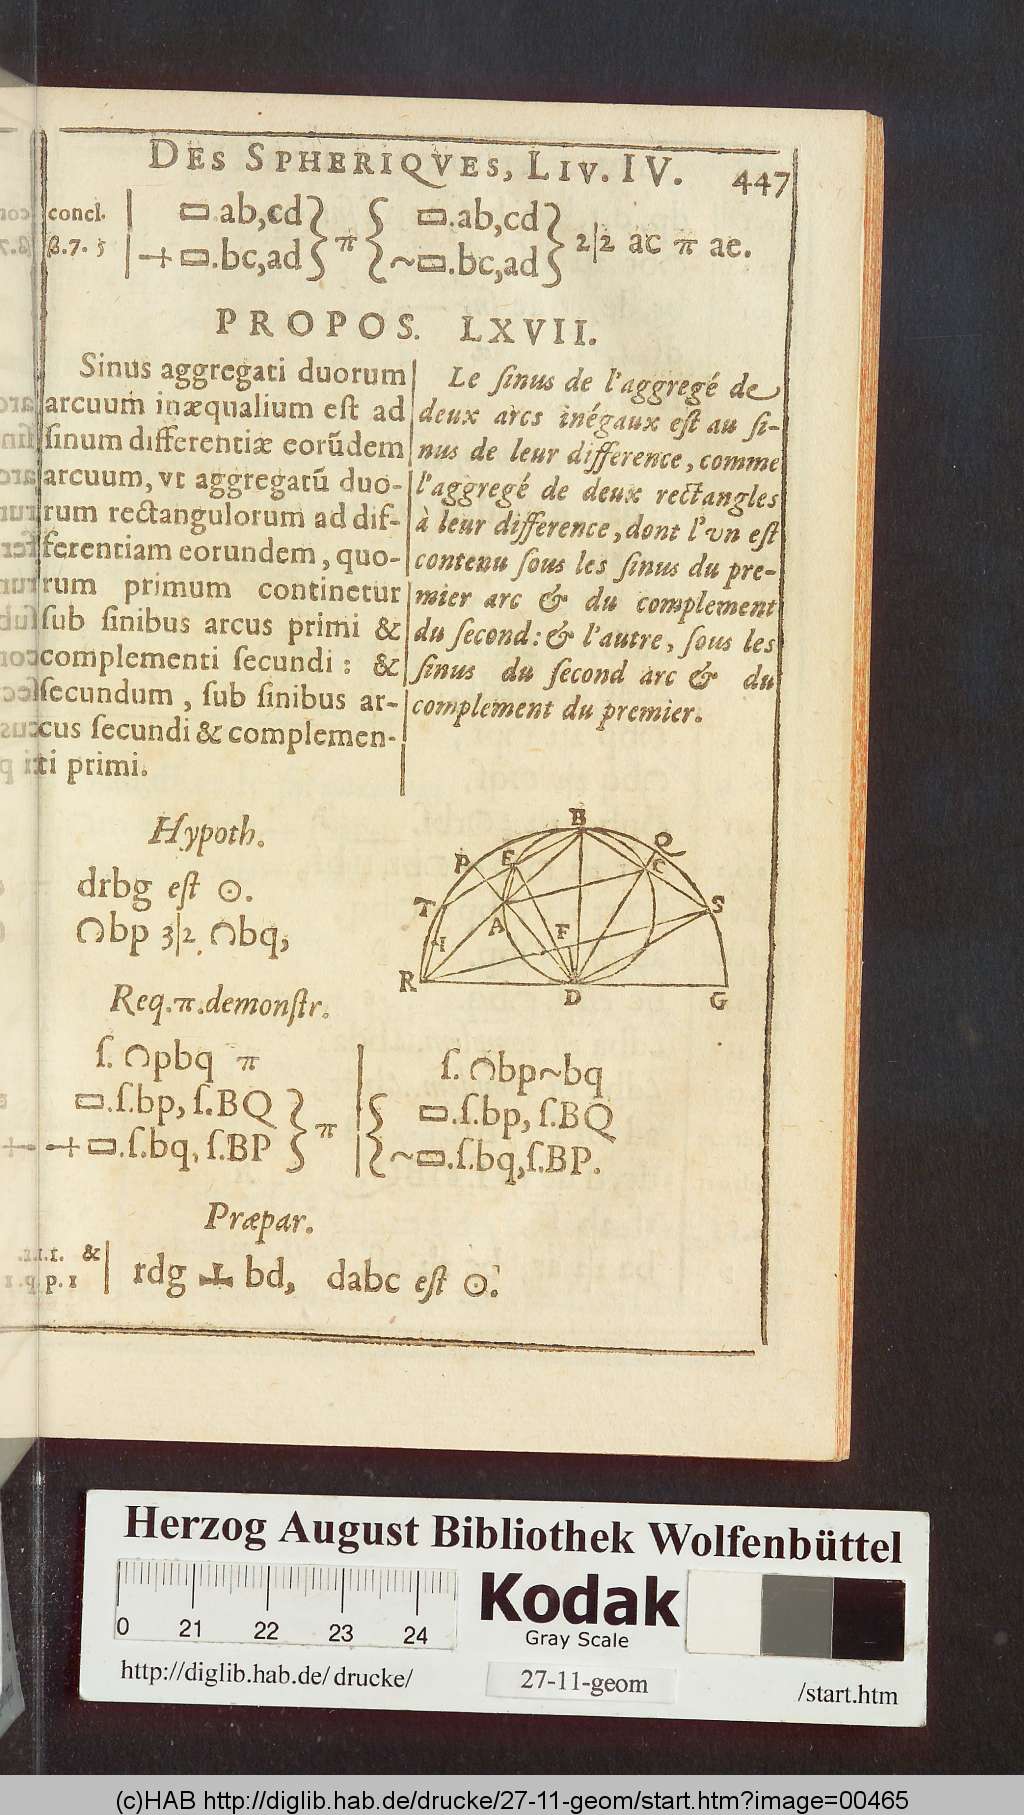 DES SPHERIQVES, LIV. IV. 447
concl. ▭.ab,cd } π { ▭.ab,cd } 2|2 ac π ae.
β.7. 5 + ▭.bc,ad ~▭.bc,ad
PROPOS. LXVII.
Sinus aggregati duorum
arcuum inæqualium est ad
sinum differentiæ eorūdem
arcuum, vt aggregatū duo-
rum rectangulorum ad dif-
ferentiam eorundem, quo-
rum primum continetur
sub sinibus arcus primi &
complementi secundi: &
secundum, sub sinibus ar-
cus secundi & complemen-
ti primi.
Le sinus de l'aggregé de
deux arcs inégaux est au si-
nus de leur difference, comme
l'aggregé de deux rectangles
à leur difference, dont l'vn est
contenu sous les sinus du pre-
mier arc & du complement
du second: & l'autre, sous les
sinus du second arc & du
complement du premier.
Hypoth.
drbg est ⊙.
∩bp 3|2 ∩bq,
Req.π.demonstr.
s. ∩pbq π
▭.s.bp, s.BQ } π
+ ▭.s.bq, s.BP
s. ∩bp~bq
{ ▭.s.bp, s.BQ
~▭.s.bq,s.BP.
B
Q
P
E
C
T
S
A
F
I
R
D
G
Præpar.
1.1. &
1. p. 1 | rdg ⊥ bd, dabc est ⊙.
Herzog August Bibliothek Wolfenbüttel
0 21 22 23 24
Kodak
Gray Scale
http://diglib.hab.de/drucke/ 27-11-geom /start.htm
(c)HAB http://diglib.hab.de/drucke/27-11-geom/start.htm?image=00465